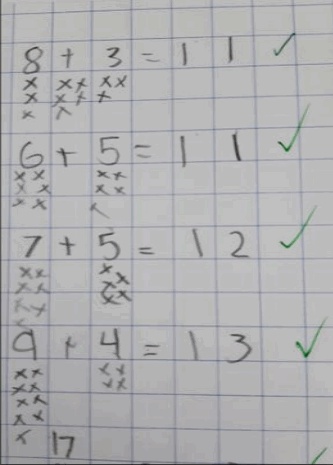 8 + 3 = 11
6 + 5 = 11
7 + 5 = 12
9 + 4 = 13
17